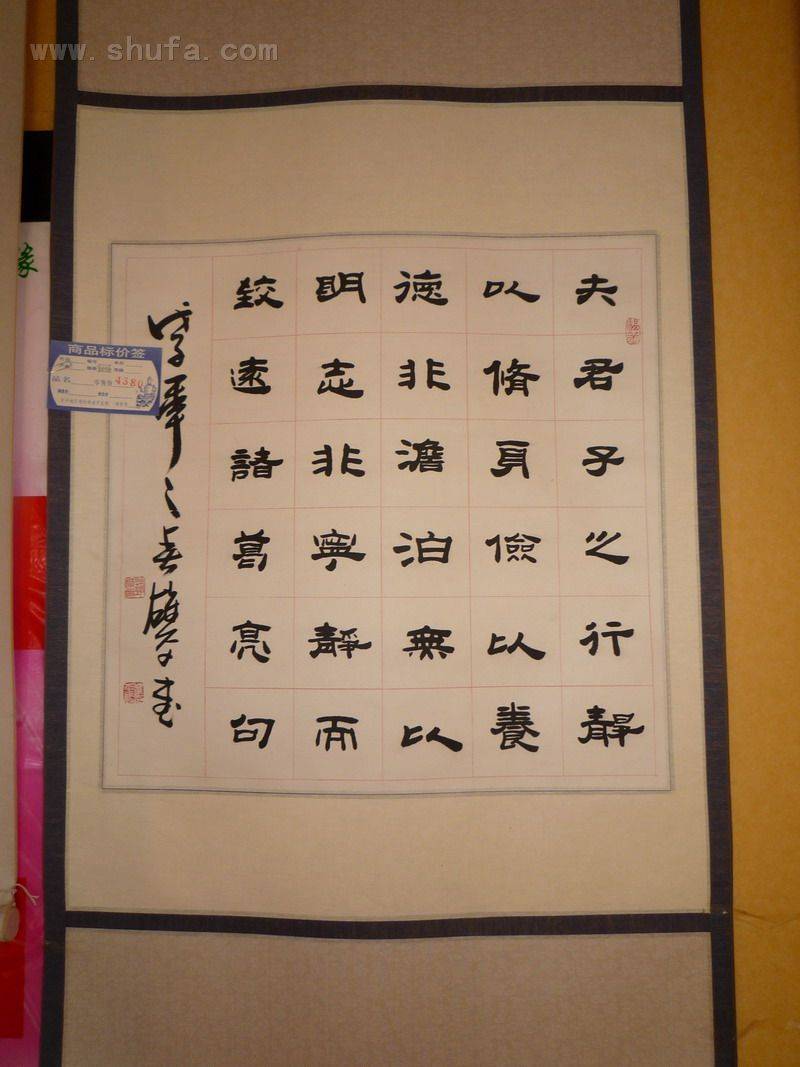 www.shufa.com
夫君子之行靜
以脩身儉以養
德非澹泊無以
明志非寧靜而
致遠諸葛亮句
商品标价签
品名
零售价 4380
缘